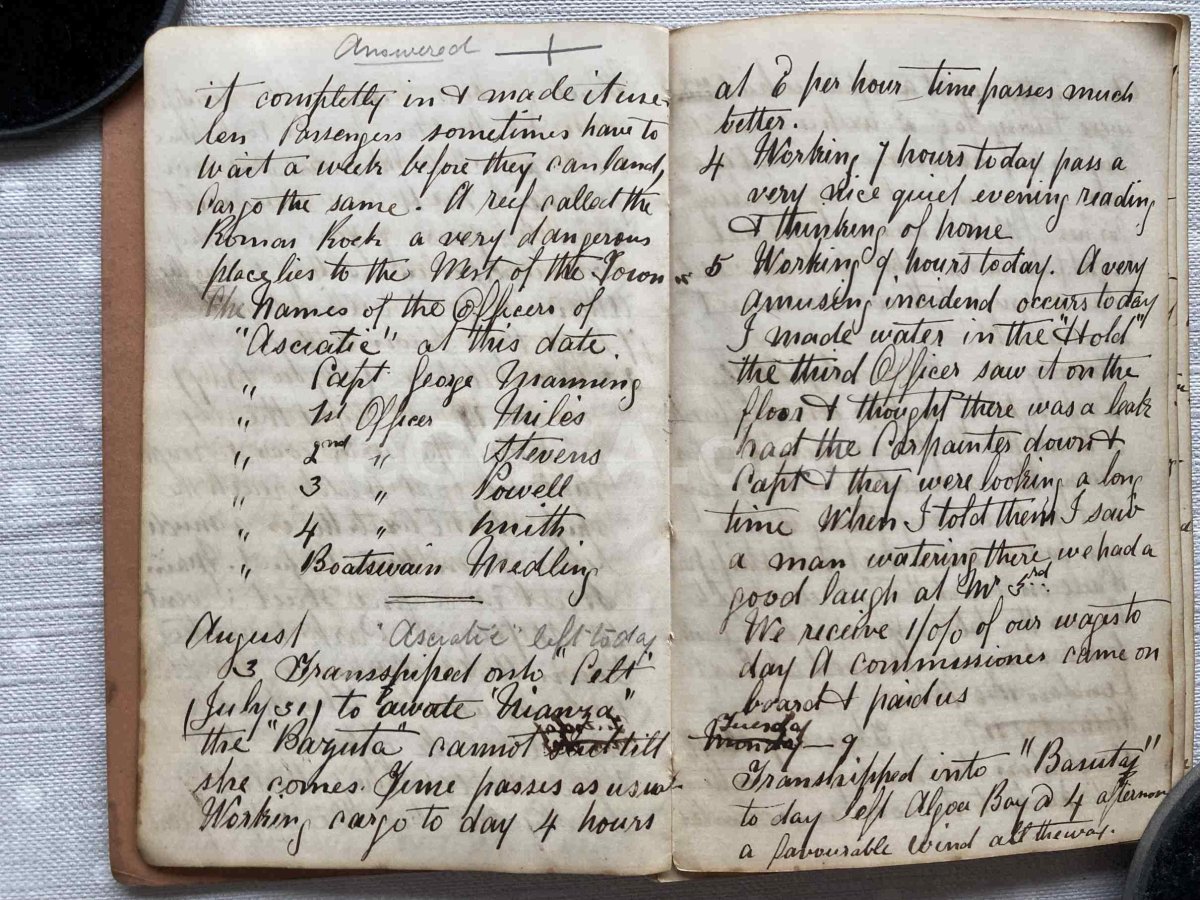 Answered
it completly in & made it use-
len Passengers sometimes have to
wait a week before they can land,
Cargo the same. A reef called the
Roman Rock a very dangerous
place lies to the West of the Town
The Names of the Officers of
"Asciatic" at this date.
" Capt George Manning
" 1st Officer Miles
" 2nd " Stevens
" 3 " Powell
" 4 " Smith
" Boatswain Medling
August "Asciatic" left today
3 Transshiped onto "Celt"
(July 31) to awate "Nianza"
the "Bazuta" cannot till
she comes. Time passes as usual
Working cargo to day 4 hours
at 6 per hour time passes much
better.
4 Working 7 hours today pass a
very nice quiet evening reading
& thinking of home
5 Working 9 hours today. A very
amusing incidend occurs today
I made water in the "Hold"
the third Officer saw it on the
floor & thought there was a leak
had the Carpainter down &
Capt & they were looking a long
time When I told them I saw
a man watering there we had a
good laugh at Mr 3rd
We receive 1/0/0 of our wages to
day A commissioner came on
board & paid us
Tuesday
Monday 9
Transhipped into "Basuta"
to day left Algoa Bay @ 4 afternoon
a favourable wind all the way.